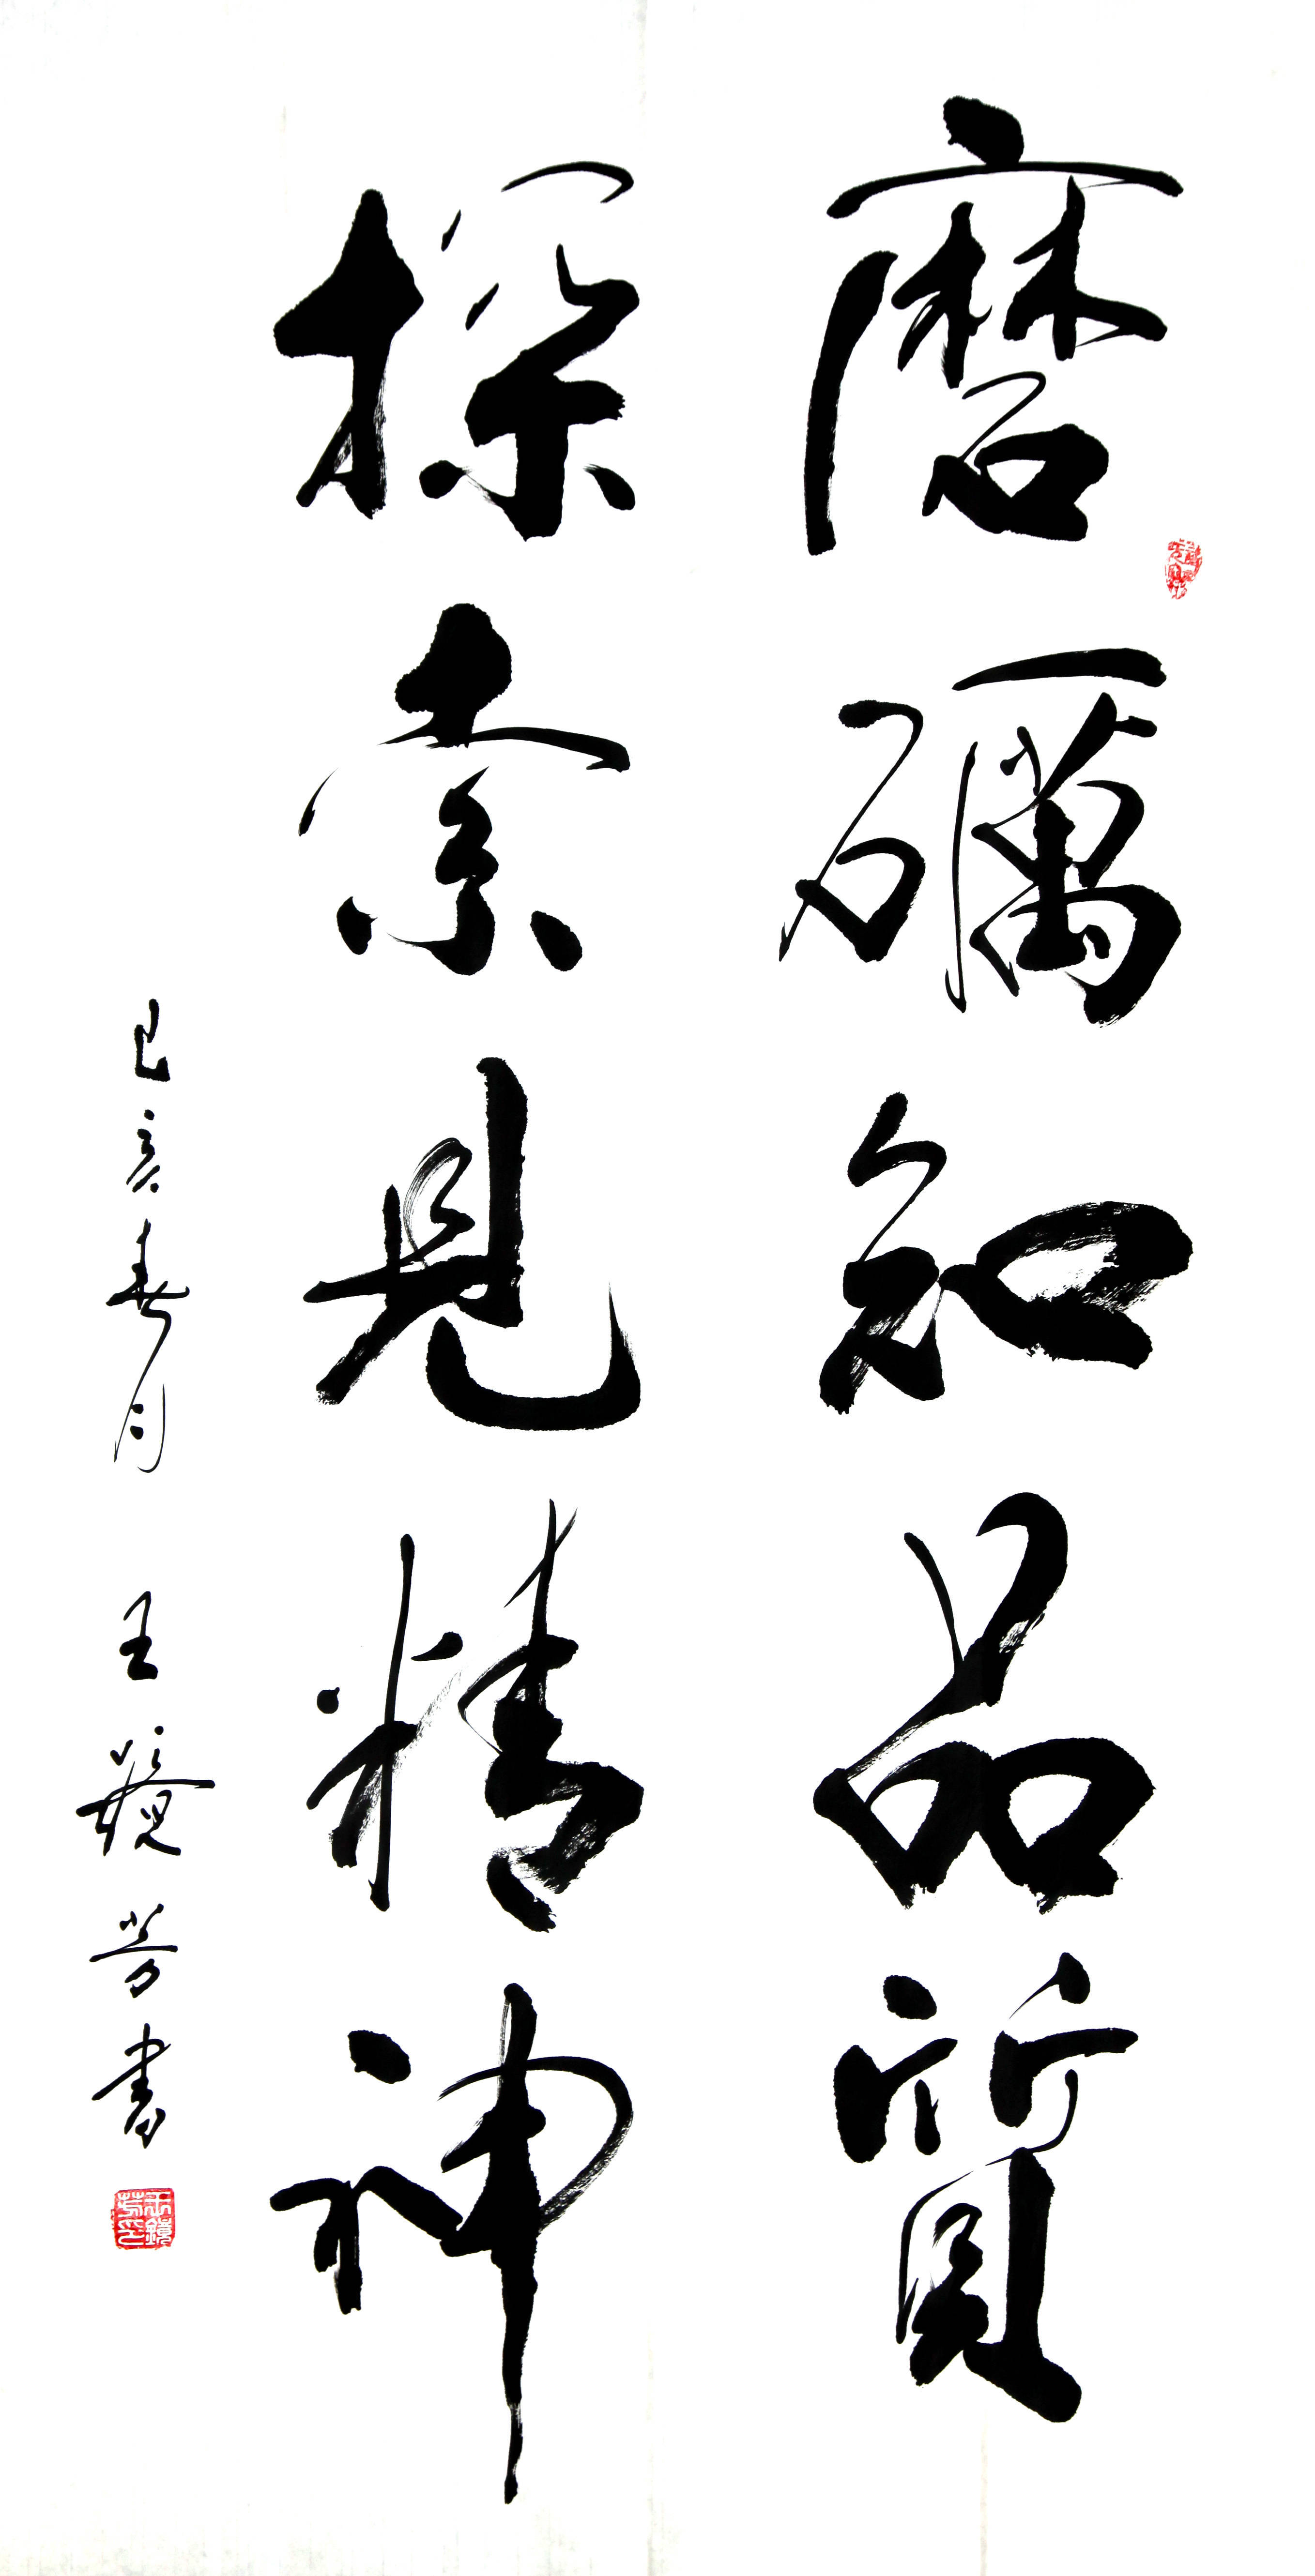 磨礪知品質
探索見精神
己亥春月 王鏡芳書